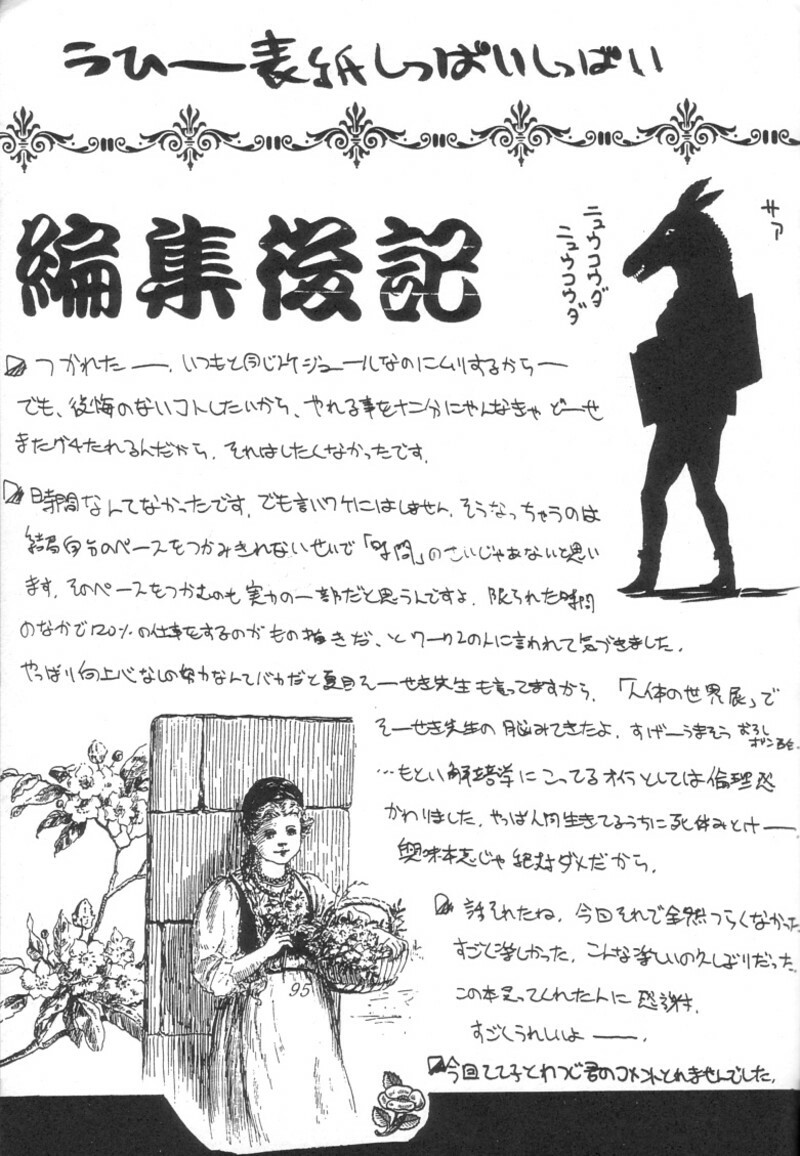 うひー表紙しっぱいしっぱい
編集後記
サア
ニュウコウダ
ニュウコウダ
つかれたー、いつもと同じスケジュールなのにムリするからー
でも、後悔のないコトしたいから、やれる事を十二分にやんなきゃ どーせ
またグチたれるんだから、それはしたくなかったです。
時間なんてなかったです。でも言いワケにはしません。そうなっちゃうのは
結局自分のペースをつかみきれないせいで「時間」のせいじゃあないと思い
ます。そのペースをつかむのも実力の一部だと思うんですよ。限られた時間
のなかで120%の仕事をするのがもの描きだ、とワークスの人に言われて気づきました。
やっぱり向上心なしの努力なんてバカだと夏目そーせき先生も言ってますから。「人体の世界展」で
そーせき先生の脳みてきたよ。すげーうまそう おろし
ポン
…もとい解剖学にこってるオイラとしては倫理
かわりました。やっぱ人間生きてるうちに死体みとけー
興味本意じゃ絶対ダメだから。
話それたね。今回それで全然つらくなかった
すごく楽しかった。こんな楽しいの久しぶりだった
この本買ってくれた人に感謝。
すごくうれしいよー。
95
今回 とれませんでした。